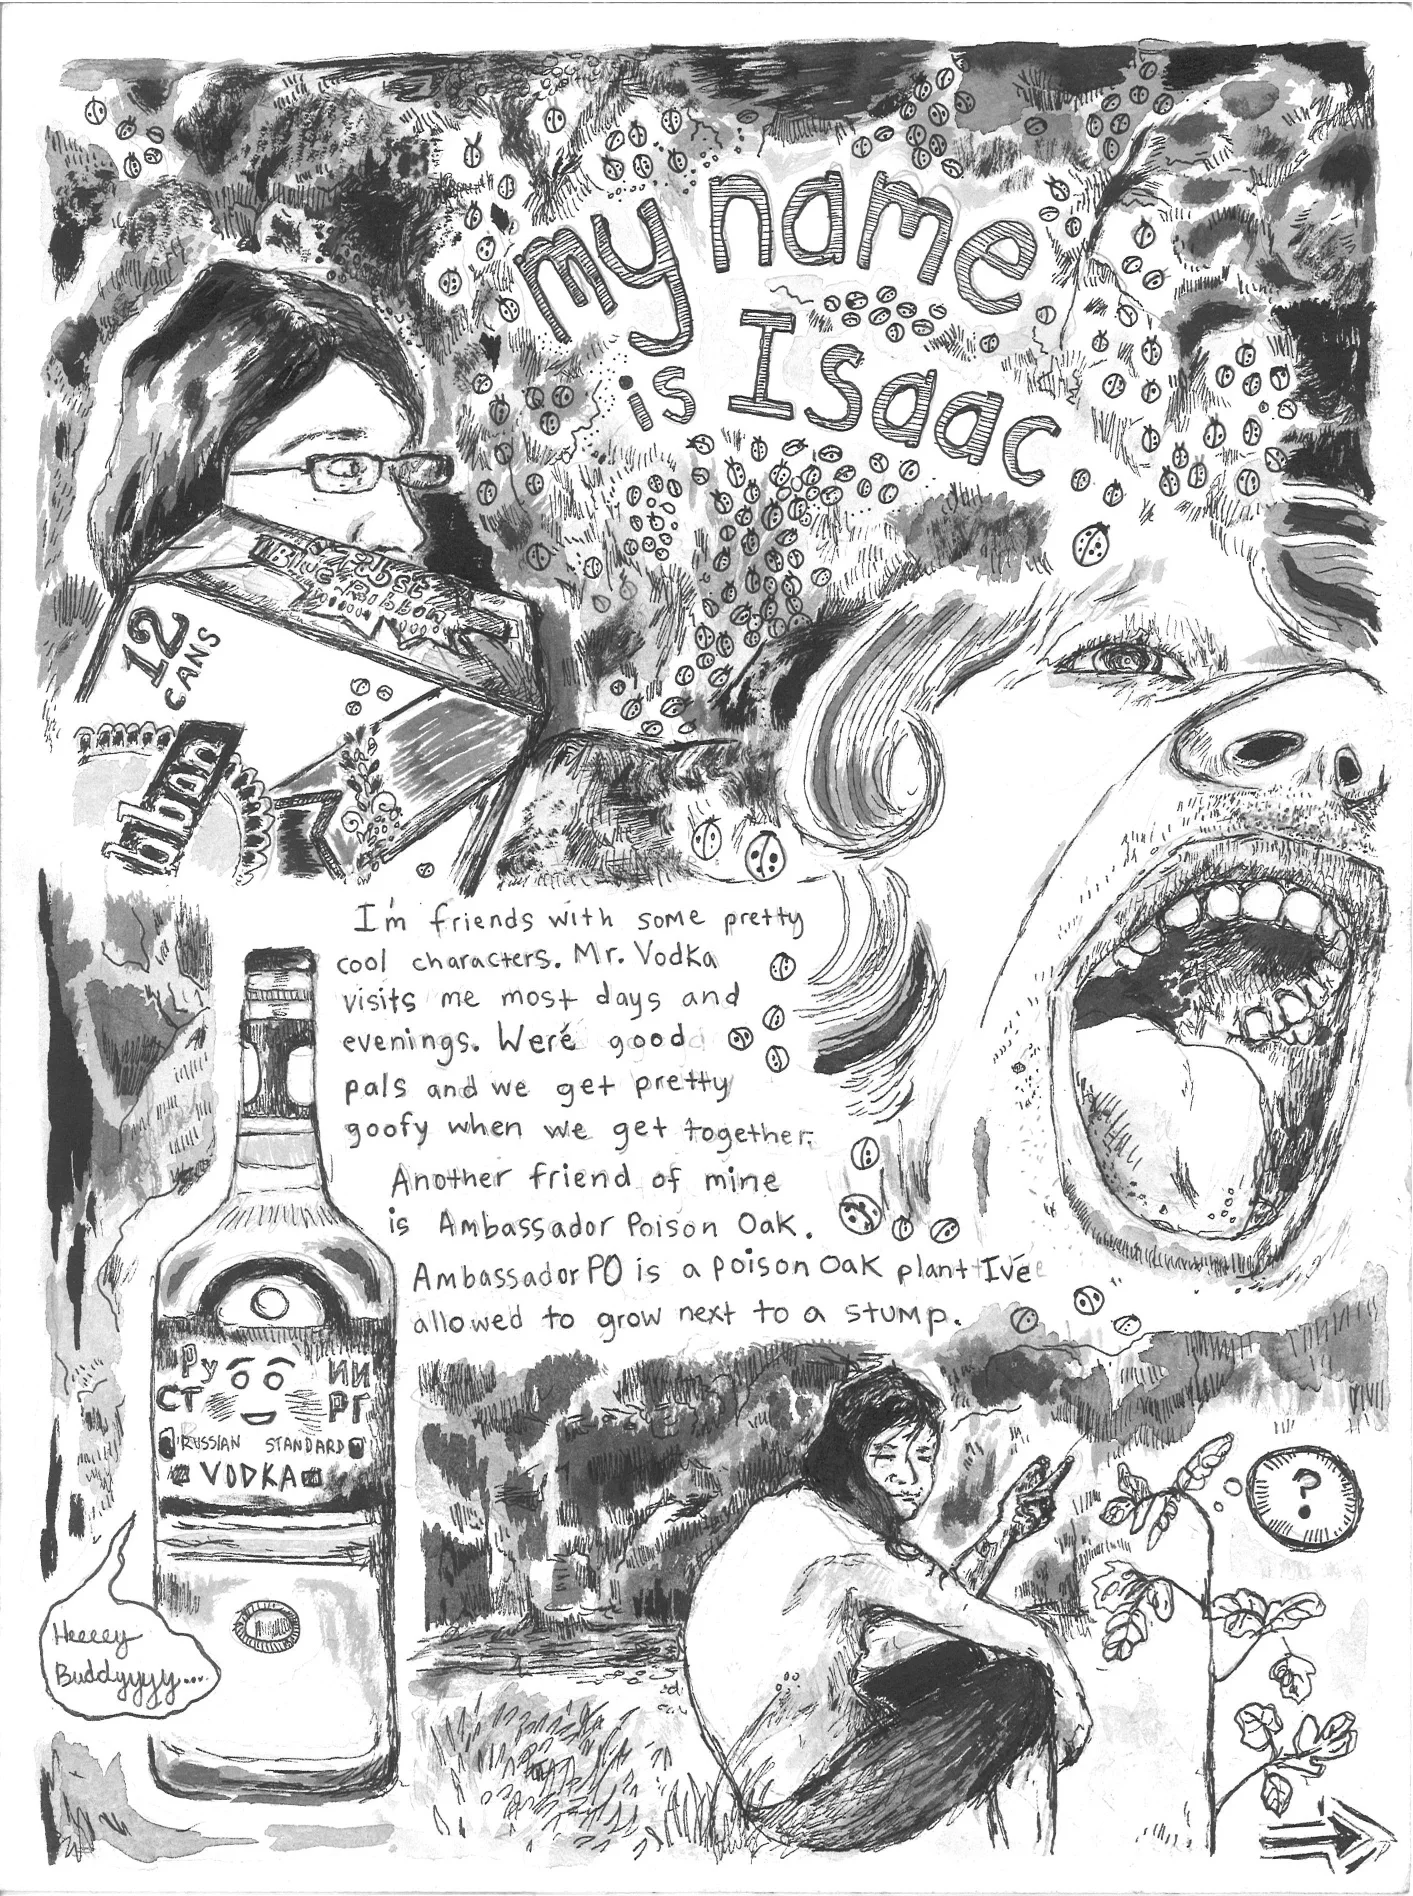 my name
is Isaac
Pabst
Blue Ribbon
12
CANS
bbon
I'm friends with some pretty
cool characters. Mr. Vodka
visits me most days and
evenings. We're good
pals and we get pretty
goofy when we get together.
Another friend of mine
is Ambassador Poison Oak.
Ambassador PO is a poison oak plant I've
allowed to grow next to a stump.
Ру ИИ
СТ РГ
RUSSIAN STANDARD
VODKA
Heeeey
Buddyyyy....
?